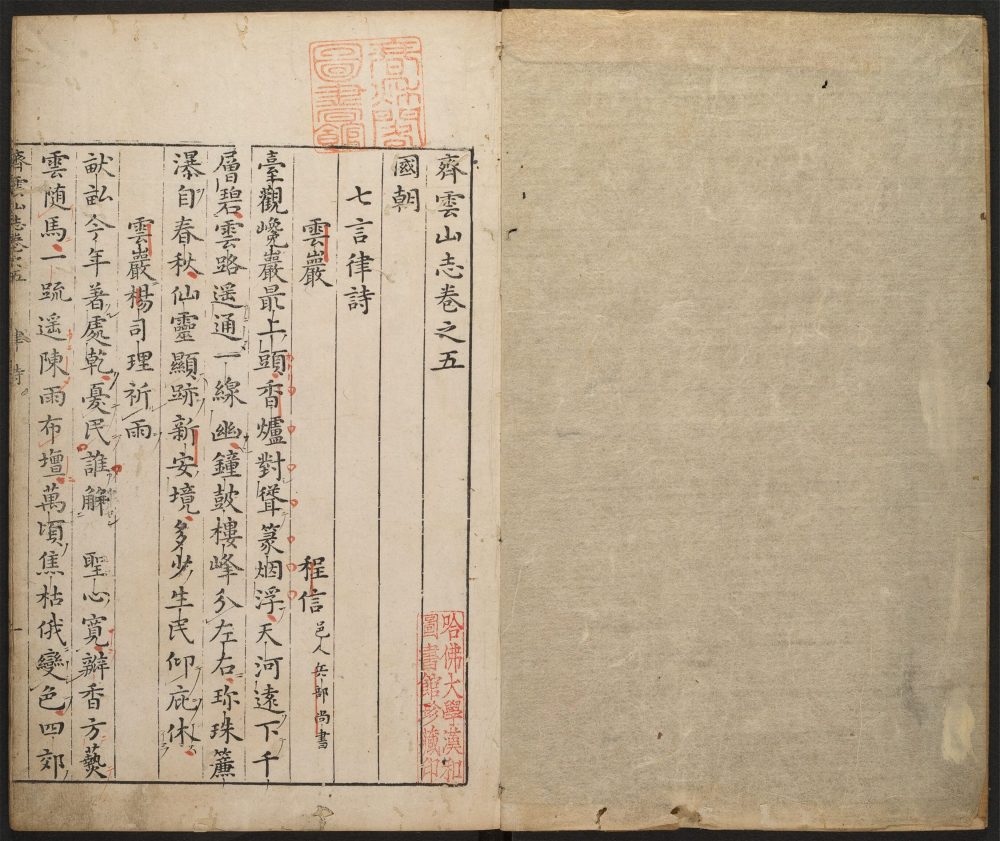 齊雲山志卷之五
國朝
七言律詩
雲巖 程信 邑人兵部尚書
臺觀巉巖最上頭香爐對聳篆烟浮天河遠下千
層碧雲路遥通一線幽鐘鼓樓峰分左右珎珠簾
瀑自春秋仙靈顯跡新安境多少生民仰庇休
雲巖楊司理祈雨
畎畝今年著處乾憂民誰解 聖心寛辦香方爇
雲随馬一疏遥陳雨布壇萬頃焦枯俄變色四郊
齊雲山志卷之五 律詩 一
圖書館
哈佛大學漢和
圖書館珍藏印